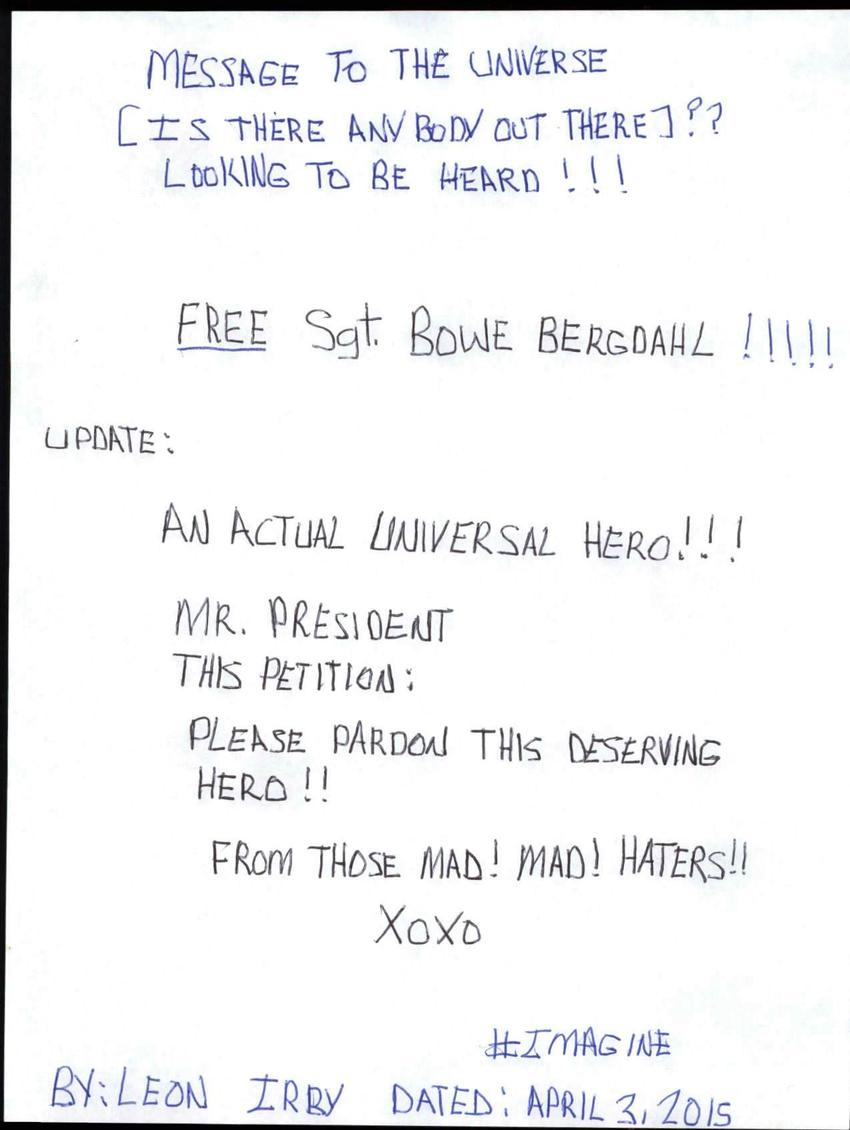 MESSAGE TO THE UNIVERSE
[IS THERE ANYBODY OUT THERE]??
LOOKING TO BE HEARD!!!
FREE Sgt. BOWE BERGDAHL !!!!!
UPDATE:
AN ACTUAL UNIVERSAL HERO!!!
MR. PRESIDENT
THIS PETITION:
PLEASE PARDON THIS DESERVING
HERO!!
FROM THOSE MAD! MAD! HATERS!!
XOXO
#IMAGINE
BY: LEON IRBY DATED: APRIL 3, 2015